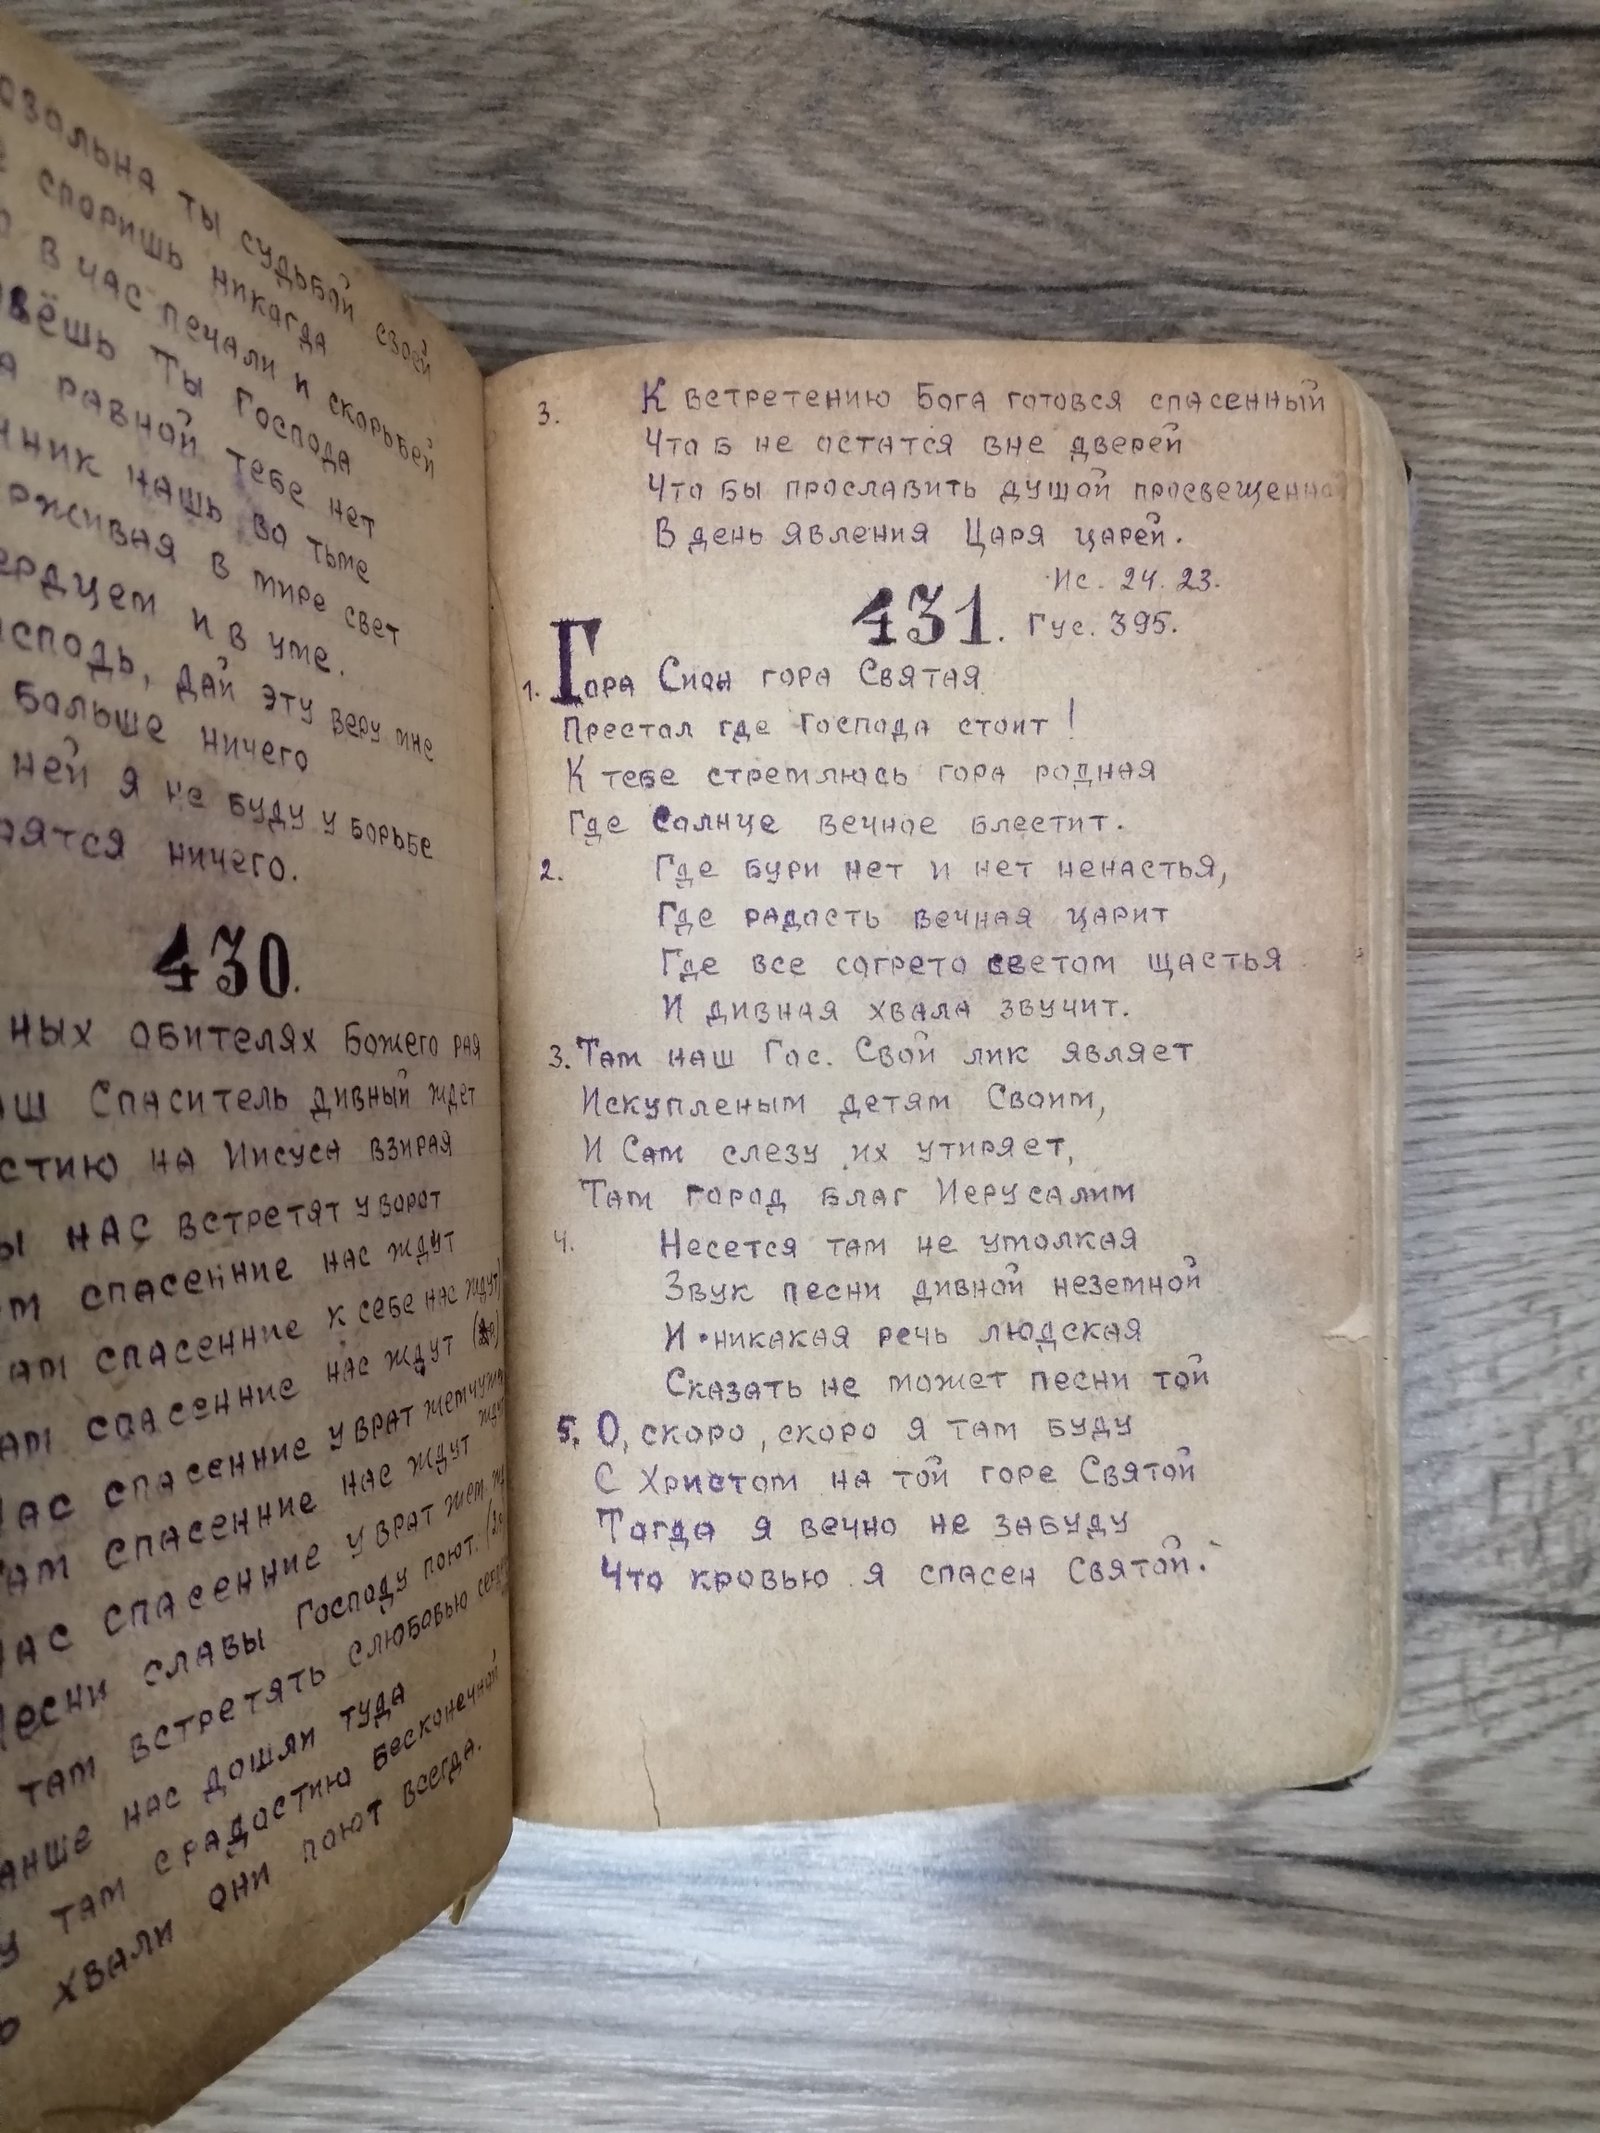 ты судьбой своей
споришь никагда
в час печали и скорьбей
Ты Господа
равной тебе нет
нашь во тьме
в мире свет
и в уме.
дай эту веру мне
больше ничего
ней я не буду у борьбе
ничего.
430.
обителях Божего рая
Спаситель дивный ждет
на Иисуса взирая
нас встретят у ворот
спасенние нас ждут
спасенние к себе нас ждут)
спасенние нас ждут
спасенние у врат жемчужн
спасенние нас ждут ждут
спасенние у врат жем.
песни славы Господу поют.
там встретять слюбовью
нас дошли туда
там срадостию бесконечной
хвали они поют всегда.
3. К встретению Бога готовся спасенный
Что б не остатся вне дверей
Что бы прославить душой просвещенной
В день явления Царя царей.
Ис. 24. 23.
431. Гус. 395.
1. Гора Сион гора Святая
Престол где Господа стоит!
К тебе стремлюсь гора родная
Где Солнце вечное блестит.
2. Где бури нет и нет ненастья,
Где радость вечная царит
Где все согрето светом щастья
И дивная хвала звучит.
3. Там наш Гос. Свой лик являет
Искупленым детям Своим,
И Сам слезу их утиряет,
Там город благ Иерусалим
4. Несется там не умолкая
Звук песни дивной неземной
И никакая речь людская
Сказать не может песни той
5. О, скоро, скоро я там буду
С Христом на той горе Святой
Тогда я вечно не забуду
Что кровью я спасен Святой.